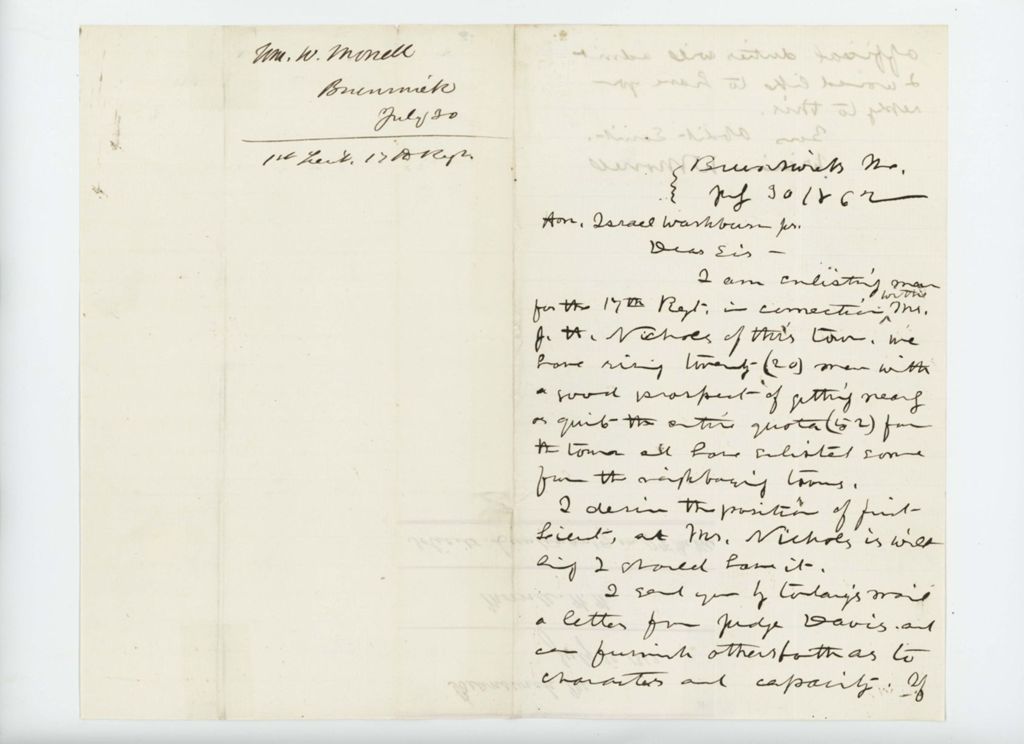 Wm. W. Morrell
Brunswick
July 30
1st Lieut. 17th Regt.
Brunswick Me.
July 30 1862
Hon. Israel Washburn jr.
Dear Sir –
I am enlisting men
for the 17th Regt. in connection with Mr.
J. H. Nichols of this town. we
have rising twenty (20) men with
a good prospect of getting nearly
or quite the entire quota (52) from
the town and have enlisted some
from the neighboring towns.
I desire the position of first
Lieut, and Mr. Nichols is will
ing I should have it.
I send you by today's mail
a letter from Judge Davis. and
can furnish others both as to
character and capacity. If
official duties will admit
I would like to have you
reply to this.
Your Obdt Servt.
Morrell